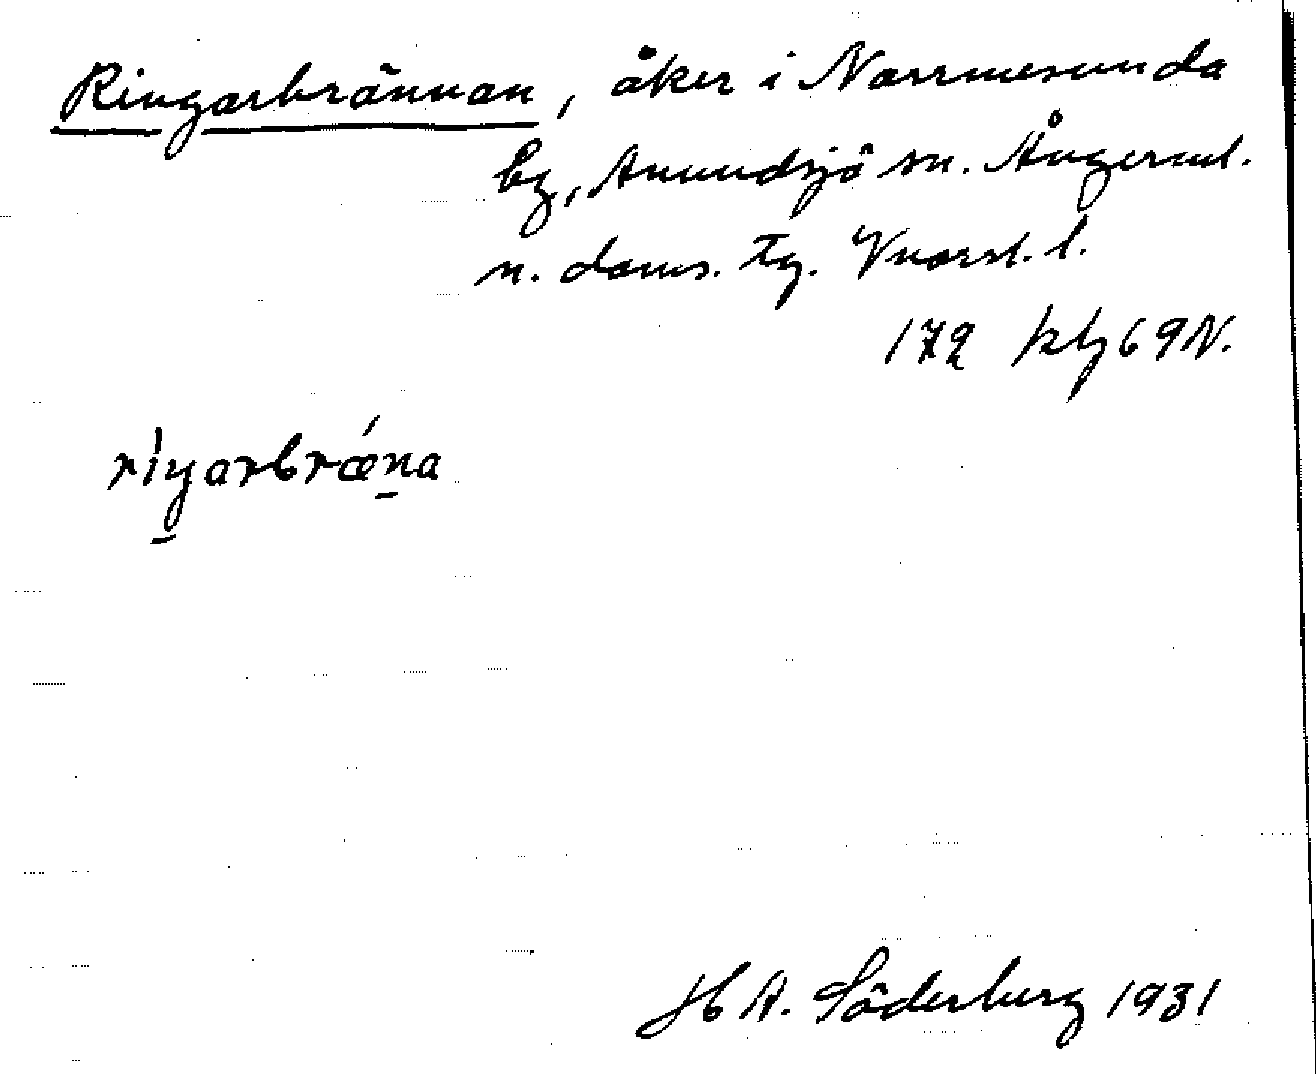 Ringarbrännan, åker i Norrmesunda
by, Anundsjö sn. Ångerml.
n. doms. tg.
172 ktbl 69 N.
riŋarbrǽna
H A. Söderberg 1931